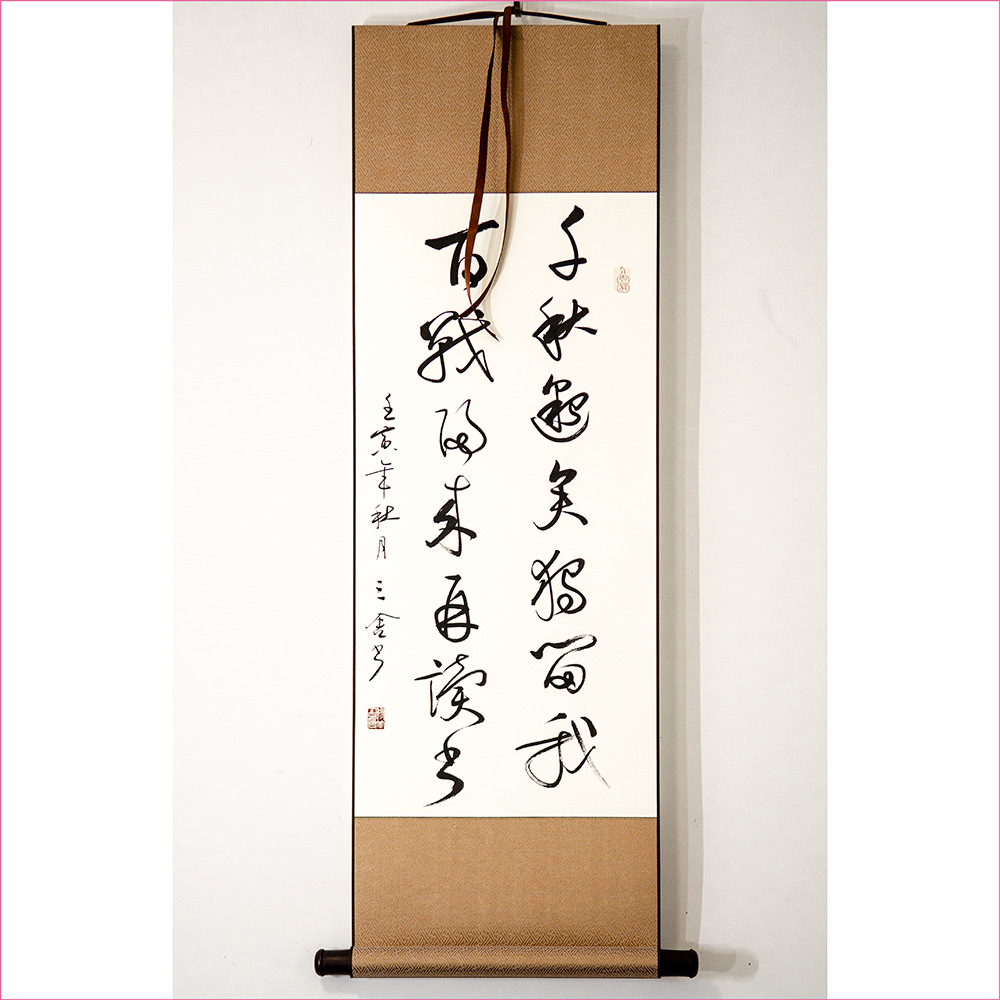 千秋邈矣獨留我
百戰歸來再讀書
壬寅年秋月三舍書